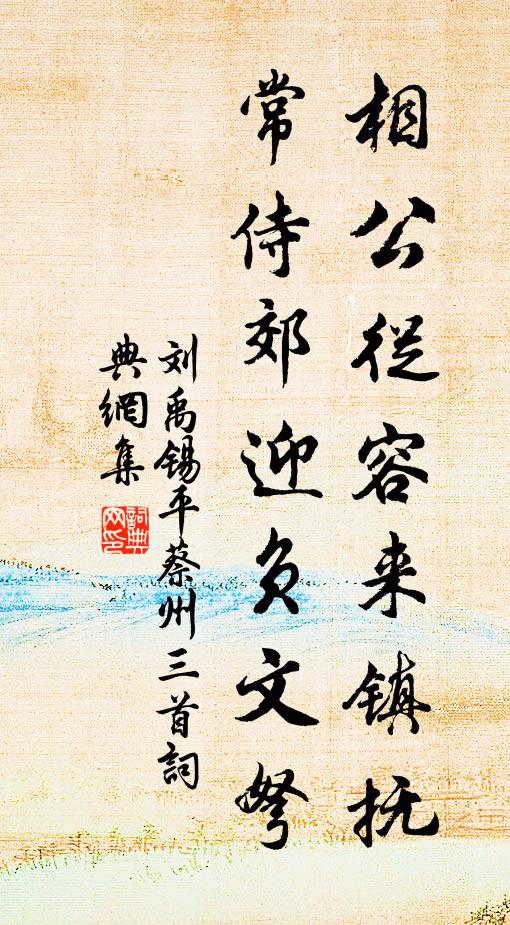 相公從容来镇抚
常侍郊迎负文弩
刘禹锡平蔡州三首詞
典網集
詞典
网印